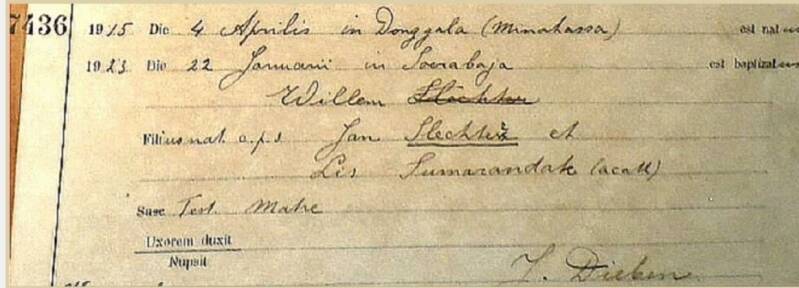 7436 1915 Die 4 Aprilis in Donggala (Minahassa) est natus
1923 Die 22 Januarii in Soerabaja est baptizatus
Willem Slechter
Filius nat. e.p.s. Jan Slechter et
Lis Sumarandak (acatt)
Susc Test. Matre
Uxorem duxit
Nupsit